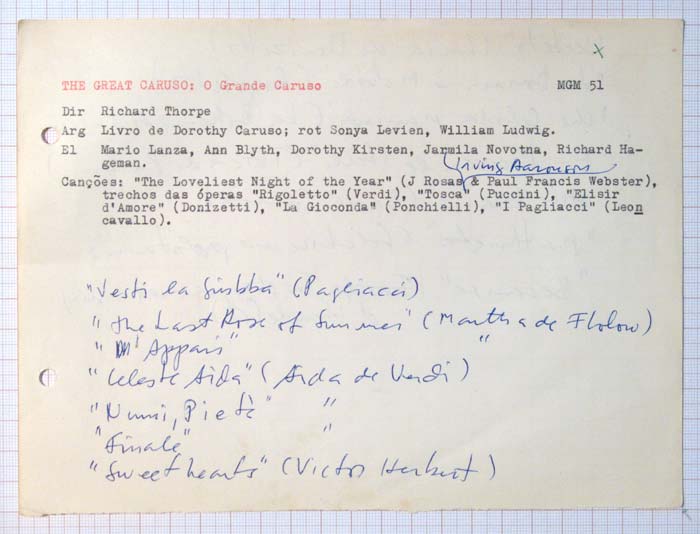 THE GREAT CARUSO: O Grande Caruso MGM 51
Dir Richard Thorpe
Arg Livro de Dorothy Caruso; rot Sonya Levien, William Ludwig.
El Mario Lanza, Ann Blyth, Dorothy Kirsten, Jarmila Novotna, Richard Ha-
geman.
Irving Aaronson
Canções: "The Loveliest Night of the Year" (J Rosas & Paul Francis Webster),
trechos das óperas "Rigoletto" (Verdi), "Tosca" (Puccini), "Elisir
d'Amore" (Donizetti), "La Gioconda" (Ponchielli), "I Pagliacci" (Leon
cavallo).
"Vesti la Giubba" (Pagliacci)
"The Last Rose of Summer" (Martha de Flotow)
"M'Appari" "
"Celeste Aida" (Aida de Verdi)
"Numi, Pietà" "
"Finale" "
"Sweethearts" (Victor Herbert)